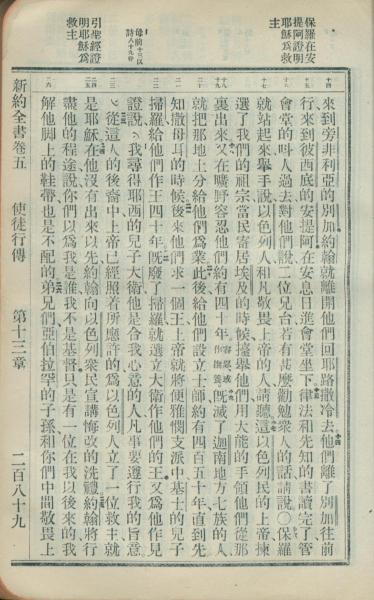 保羅在安
提阿證明
耶穌為救
主
引聖經證
明耶穌為
救主
來到旁非利亞的別加約翰就離開他們回耶路撒冷去他們離了別加往前
行來到彼西底的安提阿在安息日進會堂坐下律法和先知的書讀完了管
會堂的叫人過去對他們說二位兄台若有甚麼勸勉衆人的話請說○保羅
就站起來舉手說以色列人和凡敬畏上帝的人請聽這以色列民的上帝揀
選了我們的祖宗當民寄居埃及的時候擡舉他們用大能的手領他們從那
裏出來又在曠野容忍他們約有四十年容忍或作撫養既滅了迦南地方七族的人
就把那地土分給他們為業此後給他們設立士師約有四百五十年直到先
知撒母耳的時候後來他們求一個王上帝就將便雅憫支派中基士的兒子
掃羅給他們作王四十年既廢了掃羅就選立大衛作他們的王又為他作見
證說我尋得耶西的兒子大衛他是合我心意的人凡事要遵行我的旨意
從這人的後裔中上帝已經照着所應許的為以色列人立了一位救主就
是耶穌在他沒有出來以先約翰向以色列衆民宣講悔改的洗禮約翰將行
盡他的程途說你們以為我是誰我不是基督只是有一位在我以後來的我
解他脚上的鞋帶也是不配的弟兄們亞伯拉罕的子孫和你們中間敬畏上
新約全書卷五 使徒行傳 第十三章 二百八十九